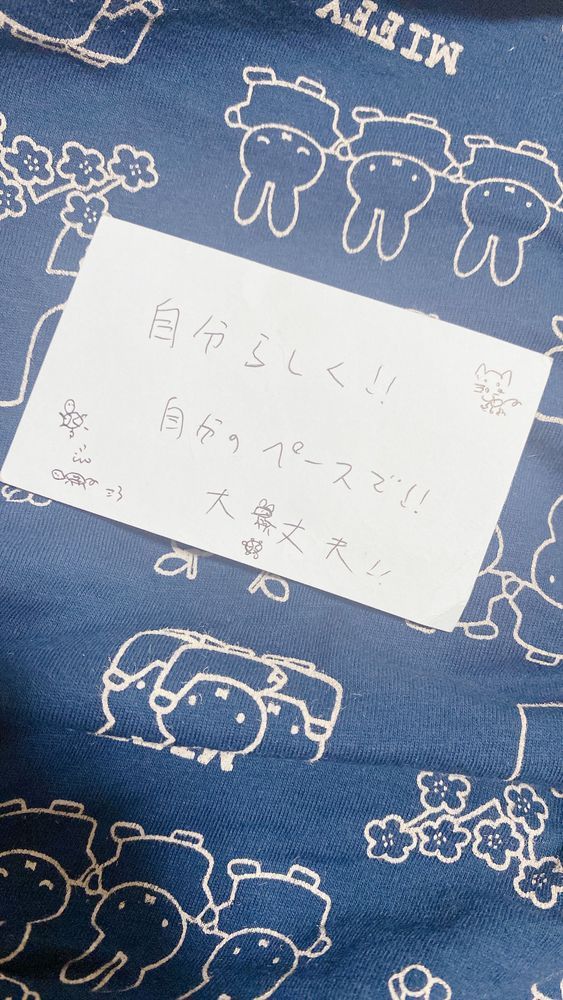 MIFFY
自分らしく!!
自分のペースで!!
大丈夫!!